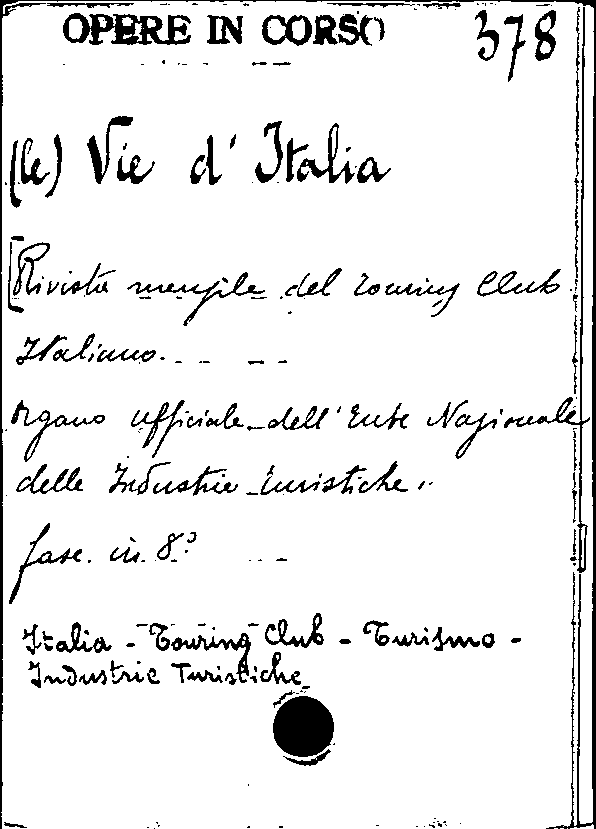 OPERE IN CORSO
378
(le) Vie d' Italia
[Rivista mensile del Touring Club
Italiano.
Organo ufficiale dell' Ente Nazionale
delle Industrie turistiche.
fasc. in 8°
Italia - Touring Club - Turismo -
Industrie Turistiche